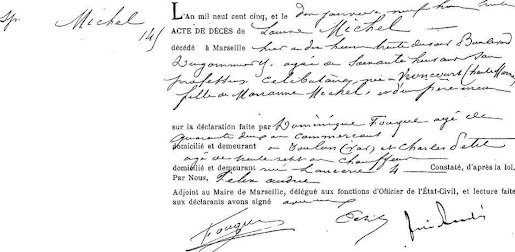 Michel
145
L'An mil neuf cent cinq, et le dix janvier, neuf heures
ACTE DE DÉCÈS de Louise Michel
décédé à Marseille hier à dix heures trente du soir Boulevard
Dugommier, agée de soixante huit ans sans
profession célibataire, née à Vroncourt (Haute Marne)
fille de Marianne Michel, et d'un père inconnu
sur la déclaration faite par Dominique Fouque agé de
quarante ans commerçant
domicilié et demeurant à Toulon (Var) et Charles
agé de trente sept ans chauffeur
domicilié et demeurant rue 4 Constaté, d'après la loi,
Par Nous, Felix André
Adjoint au Maire de Marseille, délégué aux fonctions d'Officier de l'État-Civil, et lecture faite
aux déclarants avons signé avec eux
Fouque